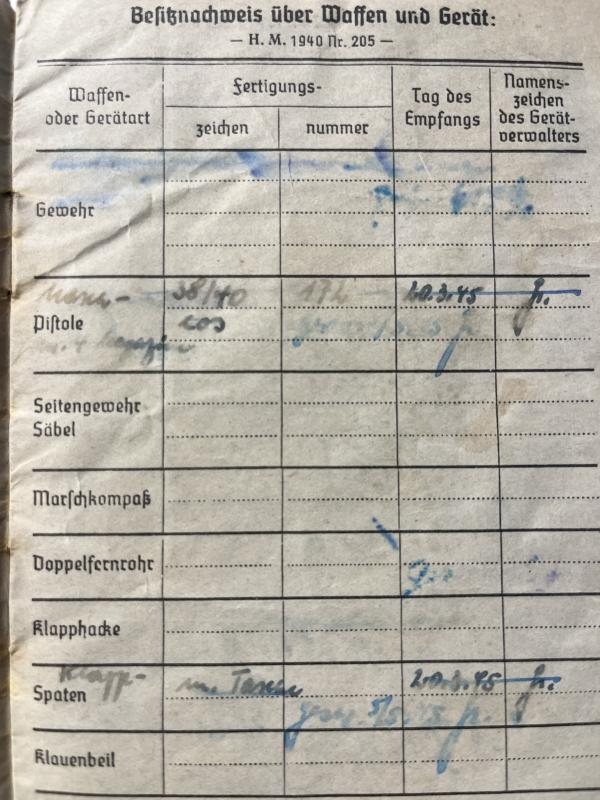 Besitznachweis über Waffen und Gerät:
— H. M. 1940 Nr. 205 —
Waffen-
oder Gerätart
Fertigungs-
zeichen
nummer
Tag des
Empfangs
Namens-
zeichen
des Gerät-
verwalters
Gewehr
38/40
20.3.45
Pistole
cos
Seitengewehr
Säbel
Marschkompaß
Doppelfernrohr
Klapphacke
Klapp-
Spaten
m.
20.3.45
Klauenbeil